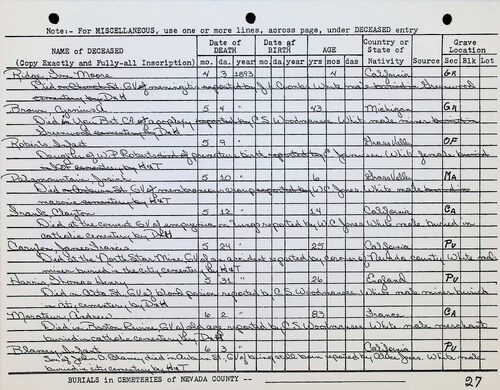 Note:- For MISCELLANEOUS, use one or more lines, across page, under DECEASED entry
NAME of DECEASED
(Copy Exactly and Fully-all Inscription)
Date of DEATH
mo. da. year
Date of BIRTH
mo. da. year
AGES
yrs mo da
Country or State of Nativity
Grave Location
Sec Blk Lot
Ridge, Moore 4 3 1893 4 California GR
Died on Church St. GV of meningitis reported by J. Crosby White male buried in Greenwood
cemetery, by D&H
Brown, 5 4 43 Michigan GR
Died in You Bet Cl of apoplexy reported by C S Woodnansea White male miner buried in
Greenwood cemetery, by D&H
Roberts, Infant 5 9 Grass Valley OF
Daughter of W P Roberts died of premature birth reported by Jones White female buried
in OF cemetery by H&T
5 10 6 Grass Valley MA
Died on Auburn St. GV of membraneous croup reported by W C Jones White male buried in
masonic cemetery, by H&T
Frank, Clayton 5 12 14 California CA
Died at the convent GV of lungs reported by W C Jones White male buried in
catholic cemetery, by D&H
James Francis 5 24 25 California PV
Died at the North Star Mine GV of accident reported by coroner of Nevada county White male
miner buried in the city cemetery by H&T
Harris, Thomas Henry 5 31 26 England PV
Died in City St. GV of blood poison reported by C S Woodnansea White male miner buried
in city cemetery, by D&H
Andrew 6 2 83 France CA
Died in Boston Ravine GV of old age reported by C S Woodnansea White male merchant
buried in catholic cemetery, by D&H
Blamey, Infant 6 3 California PV
Son of John O. Blamey, died on Auburn St, GV of being still born reported by Jones White male
buried in city cemetery by H&T
BURIALS in CEMETERIES of NEVADA COUNTY -- 27